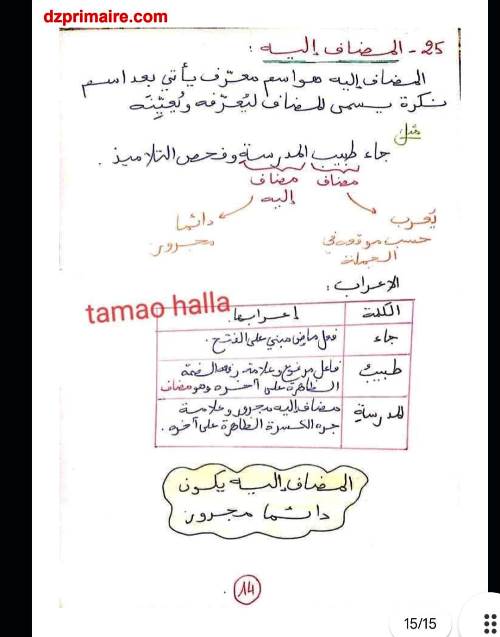 dzprimaire.com
25 - المضاف إليه :
المضاف إليه هو اسم معرّف يأتي بعد اسم
نكرة يسمى المضاف ليُعرّفه و يُعيّنه
مثل
جاء طبيب المدرسة و فحص التلاميذ .
مضاف مضاف
إليه
يُعرب دائما
حسب موقعه في مجرور
الجملة
الإعراب :
tamao halla
الكلمة إعرابها.
جاء فعل ماض مبني على الفتح.
طبيبُ فاعل مرفوع و علامة رفعه الضمة
الظاهرة على آخره وهو مضاف
المدرسةِ مضاف إليه مجرور و علامة
جره الكسرة الظاهرة على آخره .
المضاف إليه يكون
دائما مجرور
14
15/15